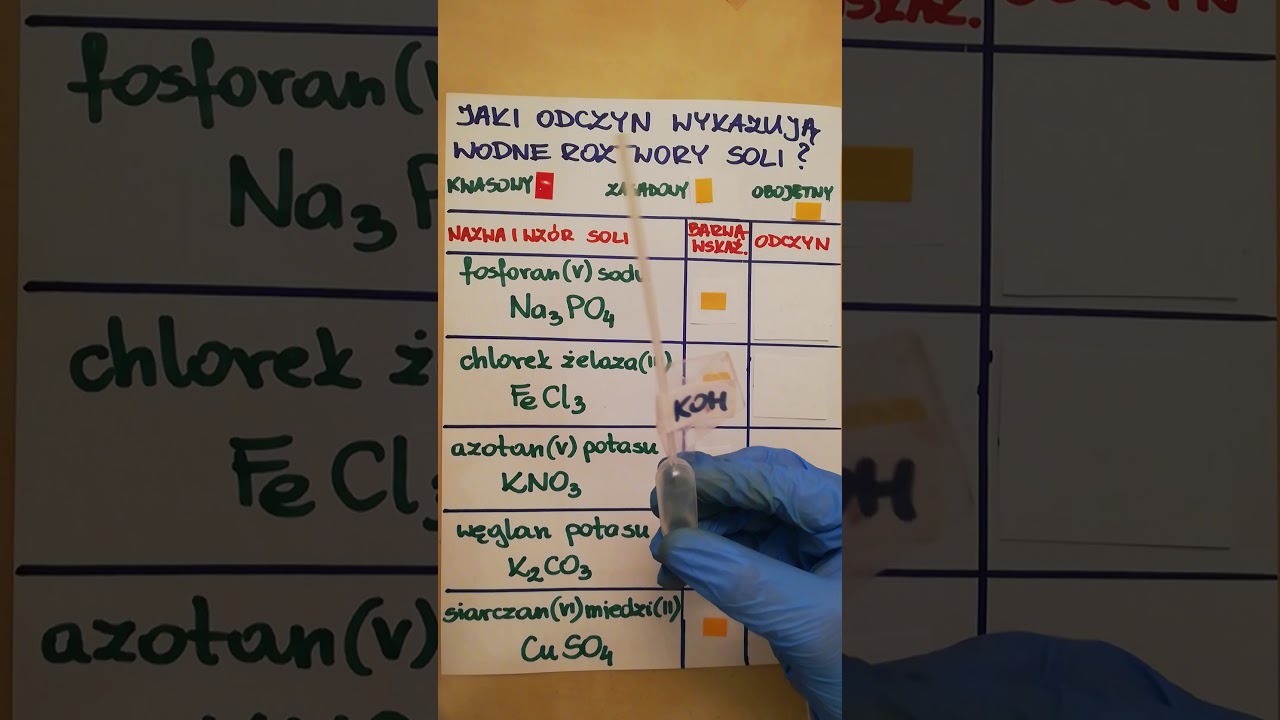 JAKI ODCZYN WYKAZUJĄ
WODNE ROZTWORY SOLI?
KWASOWY ZASADOWY OBOJĘTNY
NAZWA I WZÓR SOLI BARWA WSKAŹ. ODCZYN
fosforan(V) sodu
Na₃PO₄
chlorek żelaza(II)
FeCl₃
KOH
azotan(V) potasu
KNO₃
węglan potasu
K₂CO₃
siarczan(VI) miedzi(II)
CuSO₄